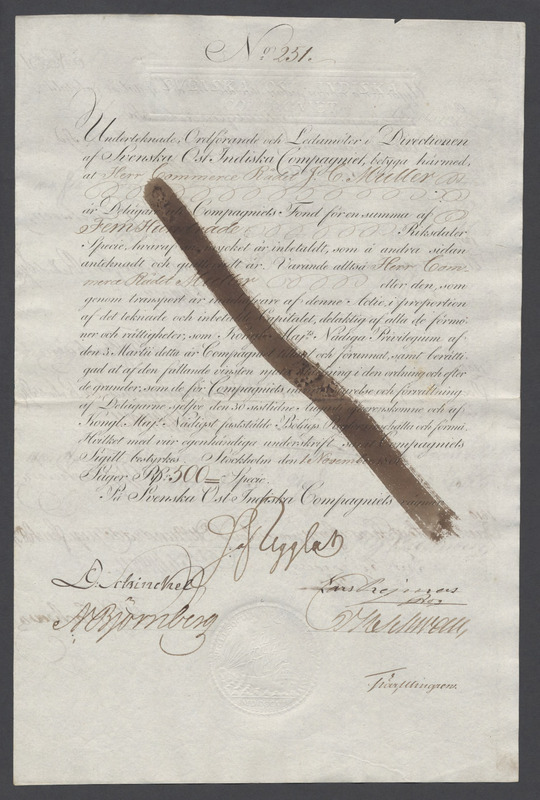 No 251.
Underteknade, Ordförande och Ledamöter i Directionen
af Svenska Ost Indiska Compagniet, betyga härmed,
at Herr Commerce Rådet J. C. Müller
är Delägare af Compagniets Fond för en summa af
Fem Hundrade Riksdaler
Specie, hvaraf så mycket är inbetaldt, som å andra sidan
antecknadt och är. Varande alltså Herr Com-
merce Rådet Müller eller den, som
genom transport är innehafvare af denne Actie, i proportion
af det tecknade och inbetalde Capitalet, delaktig af alla de förmo-
ner och rättigheter, som Kongl. Maj:ts Nådiga Privilegium af
den 3 Martii detta år Compagniet och förunnat, samt berätti-
gad at af den fallande vinsten i den ordning och efter
de grunder, som de för Compagniets styrelse och förvaltning
af Delägarne sjelfve den 30 sistlidne och af
Kongl. Maj:t Nådigst faststälde Bolags innehålla och förmå.
Hvilket med vår egenhändiga underskrift, samt Compagniets
Sigill bestyrkes. Stockholm den 1 November
Säger Rd: 500 Specie.
På Svenska Ost Indiska Compagniets vägnar
D. Schinckel
A. Björnberg